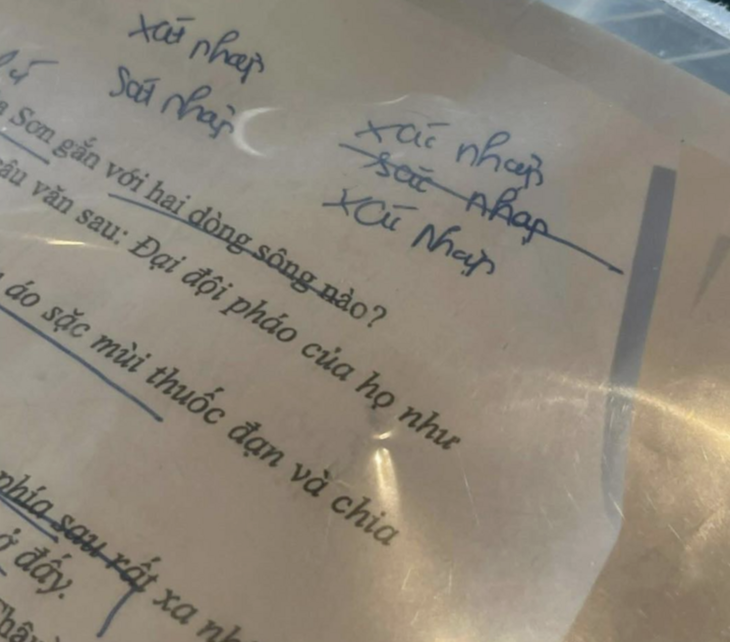 xát nhập
Sát nhập
xác nhập
sác nhập
xác nhập
Sơn gắn với hai dòng sông nào?
văn sau: Đại đội pháo của họ như
áo sặc mùi thuốc đạn và chia
phía sau rất xa
ở đấy.